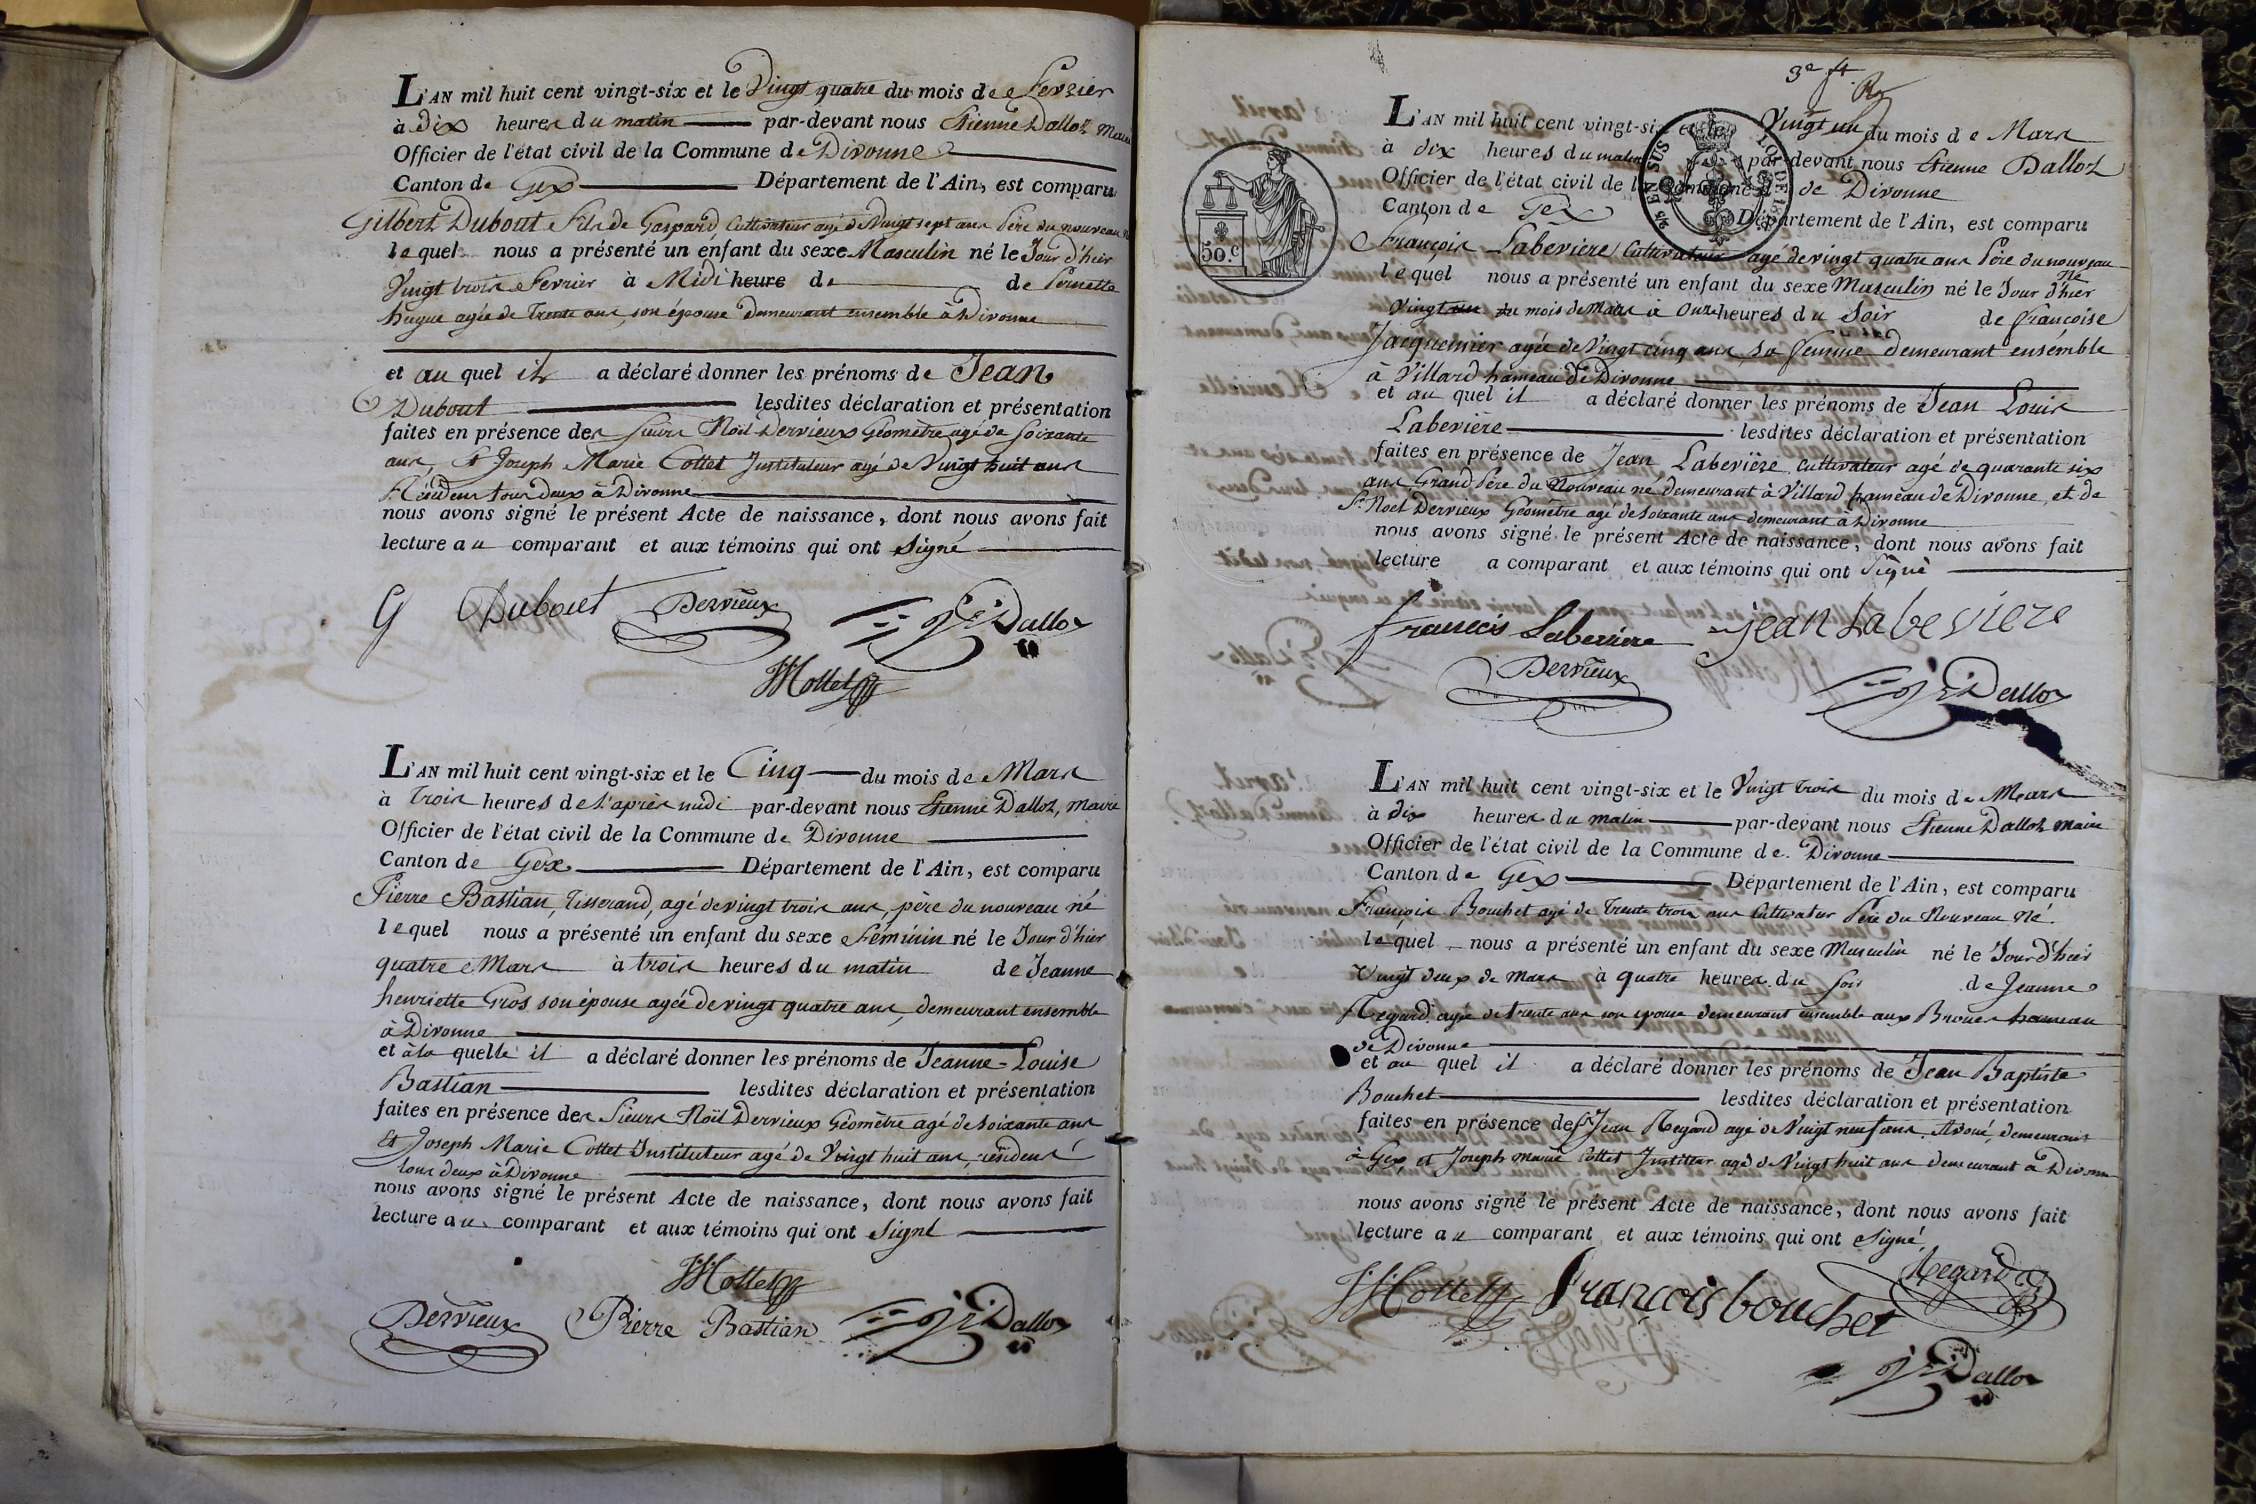 L'AN mil huit cent vingt-six et le Vingt quatre du mois de Fevrier
à dix heures du matin par-devant nous Etienne Dalloz Maire
Officier de l'état civil de la Commune de Divonne
Canton de Gex Département de l'Ain, est comparu
Gilbert Dubout fils de Gaspard Cultivateur agé de Vingt sept ans Père du nouveau
lequel nous a présenté un enfant du sexe Masculin né le Jour d'hier
Vingt trois Fevrier à Midi heure de de Pernette
hugue agée de Trente ans, son épouse demeurant ensemble à Divonne
et au quel il a déclaré donner les prénoms de Jean
Dubout lesdites déclaration et présentation
faites en présence des sieurs Noël Dervieux Géomètre agé de soixante
ans, Et Joseph Marie Collet Instituteur agé de Vingt huit ans
Résidens tous deux à Divonne
nous avons signé le présent Acte de naissance, dont nous avons fait
lecture au comparant et aux témoins qui ont Signé
G Dubout Dervieux Dalloz
JMCollet
L'AN mil huit cent vingt-six et le Cinq du mois de Mars
à Trois heures de l'après midi par-devant nous Etienne Dalloz, maire
Officier de l'état civil de la Commune de Divonne
Canton de Gex Département de l'Ain, est comparu
Pierre Bastian, Tisserand, agé de vingt trois ans, père du nouveau né
lequel nous a présenté un enfant du sexe Féminin né le Jour d'hier
quatre Mars à trois heures du matin de Jeanne
henriette Gros son épouse agée de vingt quatre ans, demeurant ensemble
à Divonne
et à la quelle il a déclaré donner les prénoms de Jeanne-Louise
Bastian lesdites déclaration et présentation
faites en présence des Sieurs Noël Dervieux Géomètre agé de soixante ans
Et Joseph Marie Collet Instituteur agé de Vingt huit ans, résidens
tous deux à Divonne
nous avons signé le présent Acte de naissance, dont nous avons fait
lecture au comparant et aux témoins qui ont Signé
JMCollet
Dervieux Pierre Bastian Dalloz
3e ft
L'AN mil huit cent vingt-six et le Vingt un du mois de Mars
à dix heures du matin par-devant nous Etienne Dalloz
Officier de l'état civil de la Commune de Divonne
Canton de Gex Département de l'Ain, est comparu
50.C
François Laberiere Cultivateur agé de vingt quatre ans Père du nouveau
né
lequel nous a présenté un enfant du sexe Masculin né le Jour d'hier
Vingt du mois de Mars à Onze heures du Soir de françoise
Jacquemier agée de Vingt cinq ans sa femme demeurant ensemble
à Villard hameau de Divonne
et au quel il a déclaré donner les prénoms de Jean Louis
Laberière lesdites déclaration et présentation
faites en présence de Jean Laberière, cultivateur agé de quarante six
ans Grand Père du Nouveau né, demeurant à Villard hameau de Divonne, et de
Sr Noël Dervieux Géomètre agé de soixante ans demeurant à Divonne
nous avons signé le présent Acte de naissance, dont nous avons fait
lecture a comparant et aux témoins qui ont Signé
francois Laberiere jean Laberiere
Dervieux Dalloz
L'AN mil huit cent vingt-six et le Vingt trois du mois de Mars
à dix heures du matin par-devant nous Etienne Dalloz maire
Officier de l'état civil de la Commune de Divonne
Canton de Gex Département de l'Ain, est comparu
François Bouchet agé de Trente trois ans Cultivateur Père du Nouveau Né
lequel nous a présenté un enfant du sexe Masculin né le Jour d'hier
Vingt deux de Mars à quatre heures du soir de Jeanne
Regard, agée de trente ans son épouse demeurant ensemble aux Broues hameau
de Divonne
et au quel il a déclaré donner les prénoms de Jean Baptiste
Bouchet lesdites déclaration et présentation
faites en présence de Sr Jean Regard agé de Vingt neuf ans Avoué, demeurant
à Gex et Joseph marie Collet Instituteur agé de Vingt huit ans demeurant à Divonne
nous avons signé le présent Acte de naissance, dont nous avons fait
lecture au comparant et aux témoins qui ont Signé
JMCollet françois bouchet Regard
Dalloz